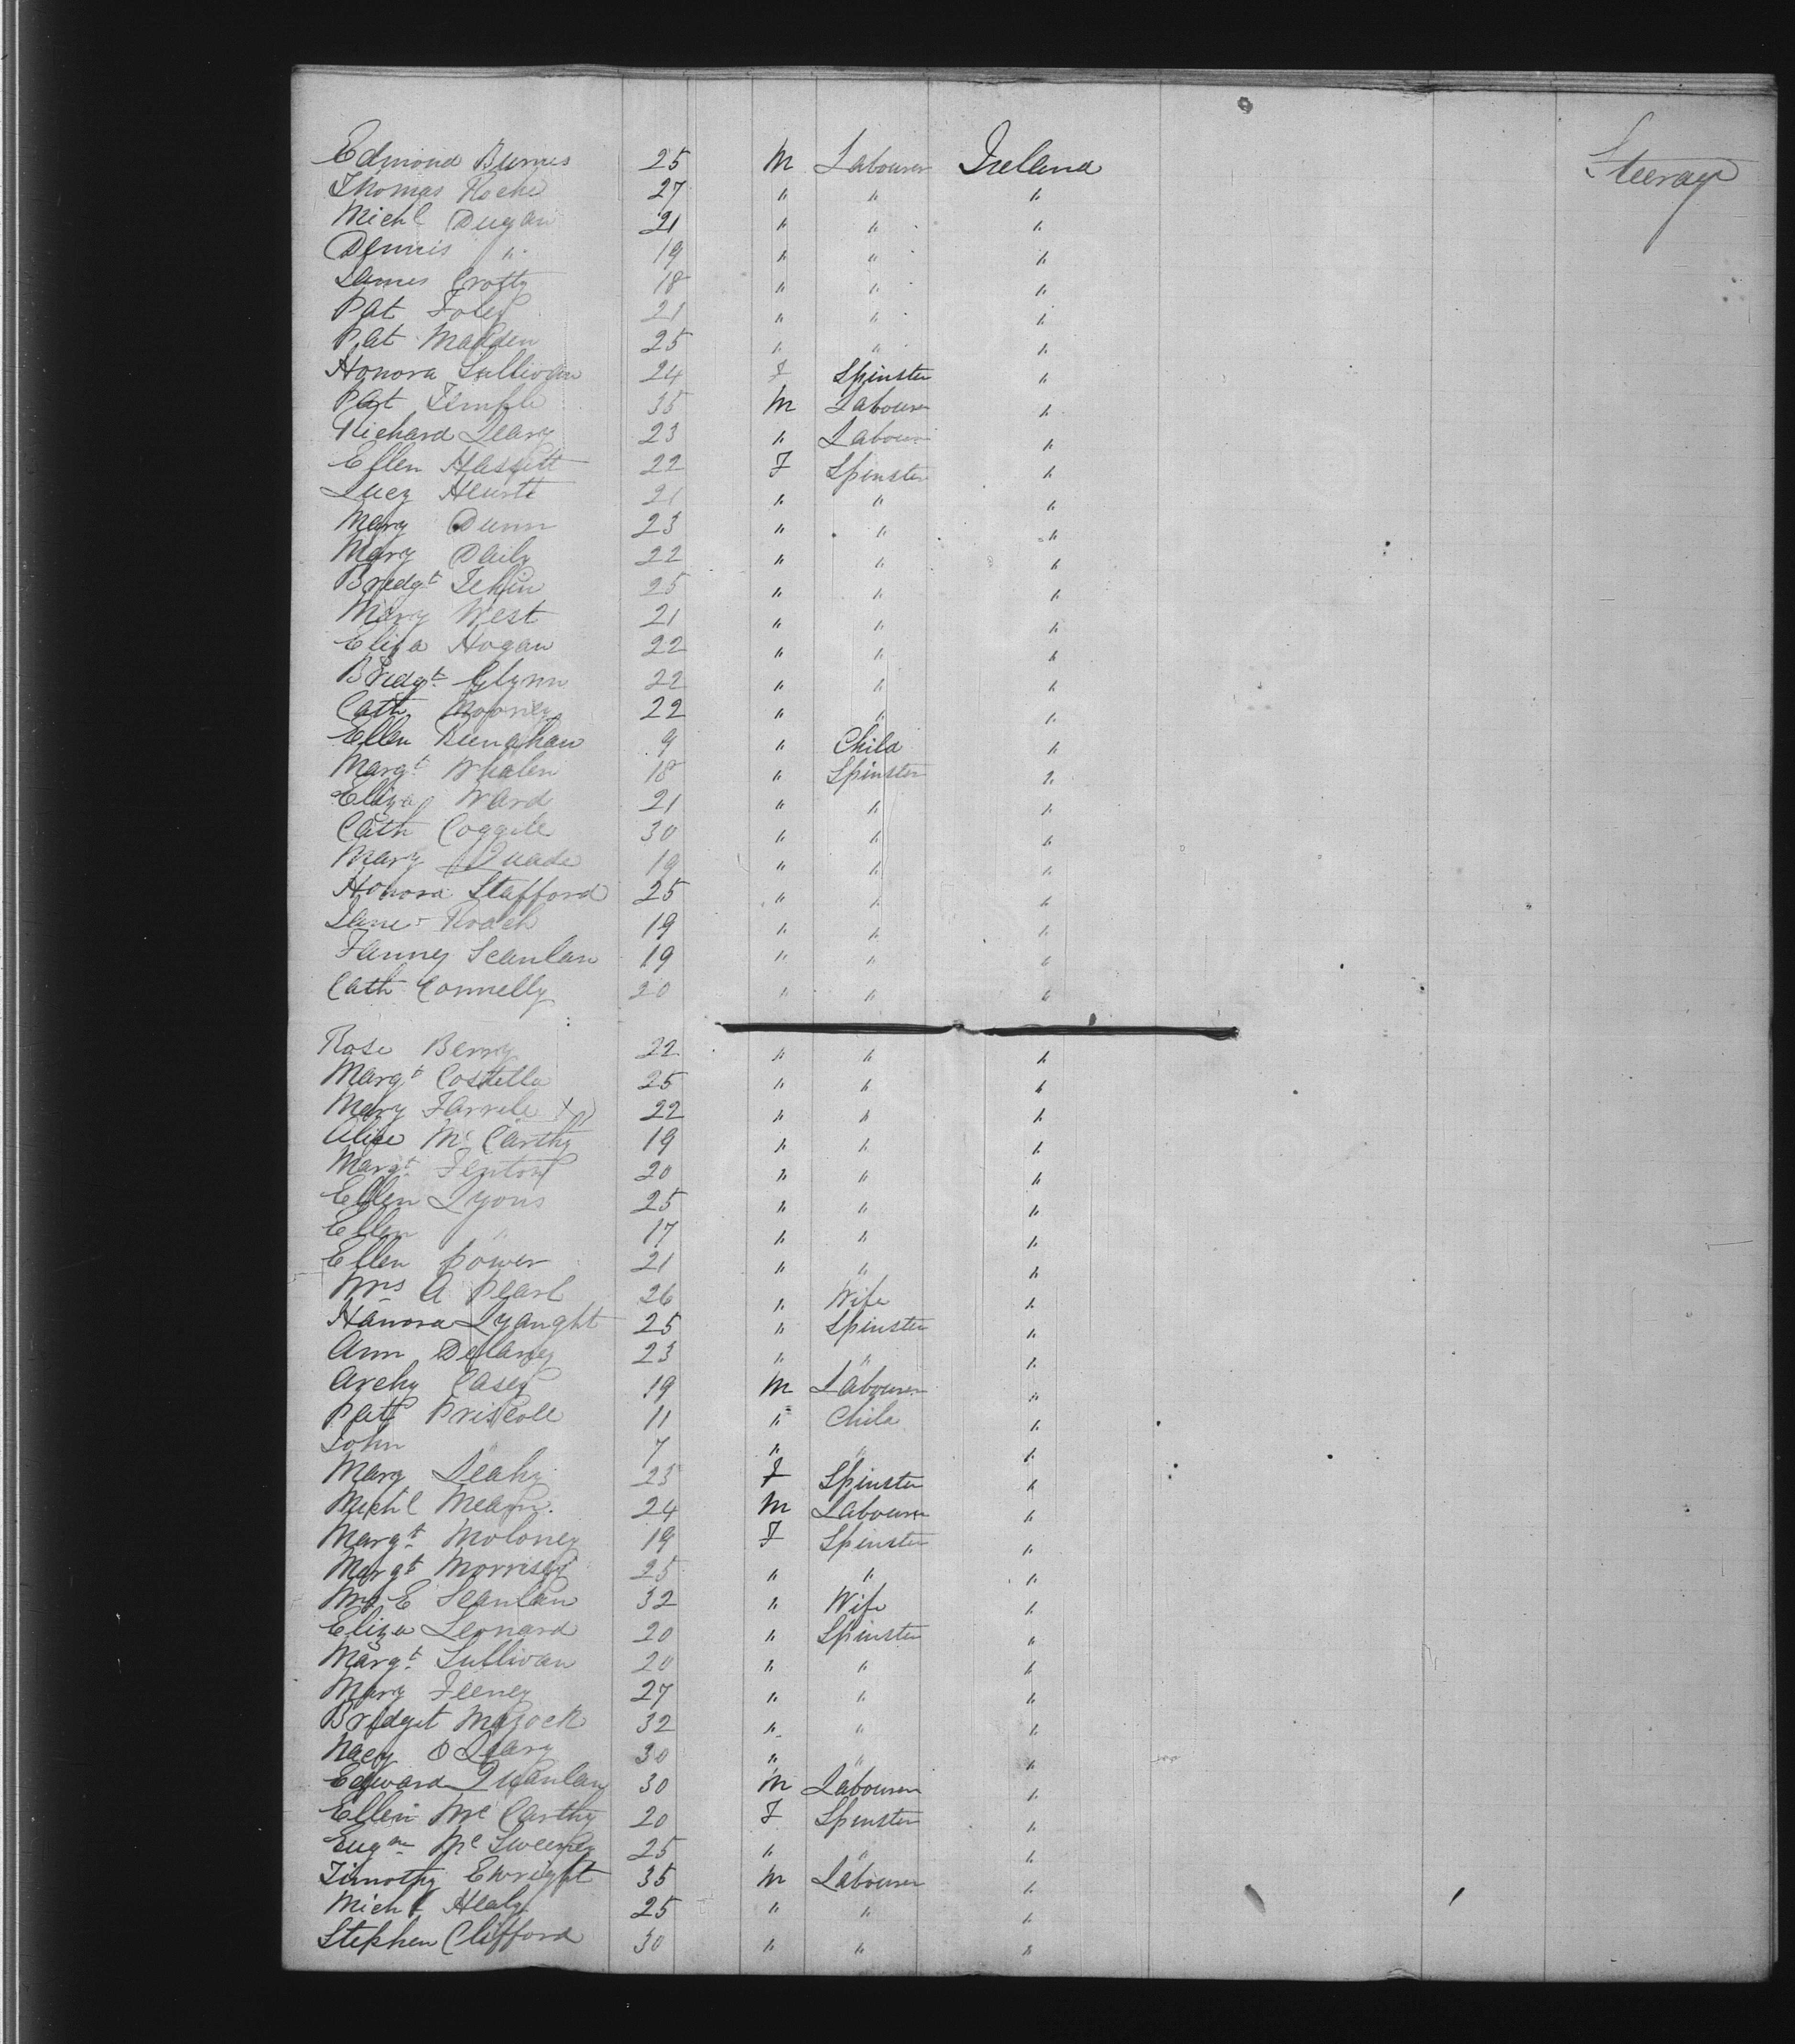 Edmond Burns 25 M Labourer Ireland Steerage
Thomas Roche 27 " " "
Michl Dugan 21 " " "
Dennis " 19 " " "
James Crotty 18 " " "
Pat Foley 21 " " "
Pat Madden 25 " " "
Honora Sullivan 24 F Spinster "
Pat Temple 35 M Labourer "
Richard Leary 23 " Labourer "
Ellen Hassett 22 F Spinster "
Lucy 21 " " "
Mary Dunn 23 " " "
Mary Daily 22 " " "
Bredgt 25 " " "
Mary West 21 " " "
Eliza Hogan 22 " " "
Bridgt Glynn 22 " " "
Cath Mooney 22 " " "
Ellen 9 " Child "
Margt Whalen 18 " Spinster "
Eliza Ward 21 " " "
Cath 30 " " "
Mary Quade 19 " " "
Honora Stafford 25 " " "
Jane Roach 19 " " "
Fanney Scanlan 19 " " "
Cath Connelly 20 " " "
Rose Berry 22 " " "
Margt Costello 25 " " "
Mary 22 " " "
Alice Mc Carthy 19 " " "
Margt Fenton 20 " " "
Ellen Lyons 25 " " "
Ellen " 17 " " "
Ellen power 21 " " "
Mrs A Pearl 26 " Wife "
Hanora Lyanght 25 " Spinster "
Ann Delaney 23 " " "
Archy Casey 19 M Labourer "
Patt Driscole 11 " Child "
John " 7 " " "
Mary Leahy 23 F Spinster "
Michl 24 M Labourer "
Margt Moloney 19 F Spinster "
Margt Morrisey 25 " " "
Mrs E Scanlan 32 " Wife "
Eliza Leonard 20 " Spinster "
Margt Sullivan 20 " " "
Mary Feeney 27 " " "
Bridget 32 " " "
Nacy O Leary 30 " " "
Edward Quanlan 30 M Labourer "
Ellen Mc Carthy 20 F Spinster "
Mc Sweeney 25 " " "
Timothy Enright 35 M Labourer "
Michl Healy 25 " " "
Stephen Clifford 30 " " "